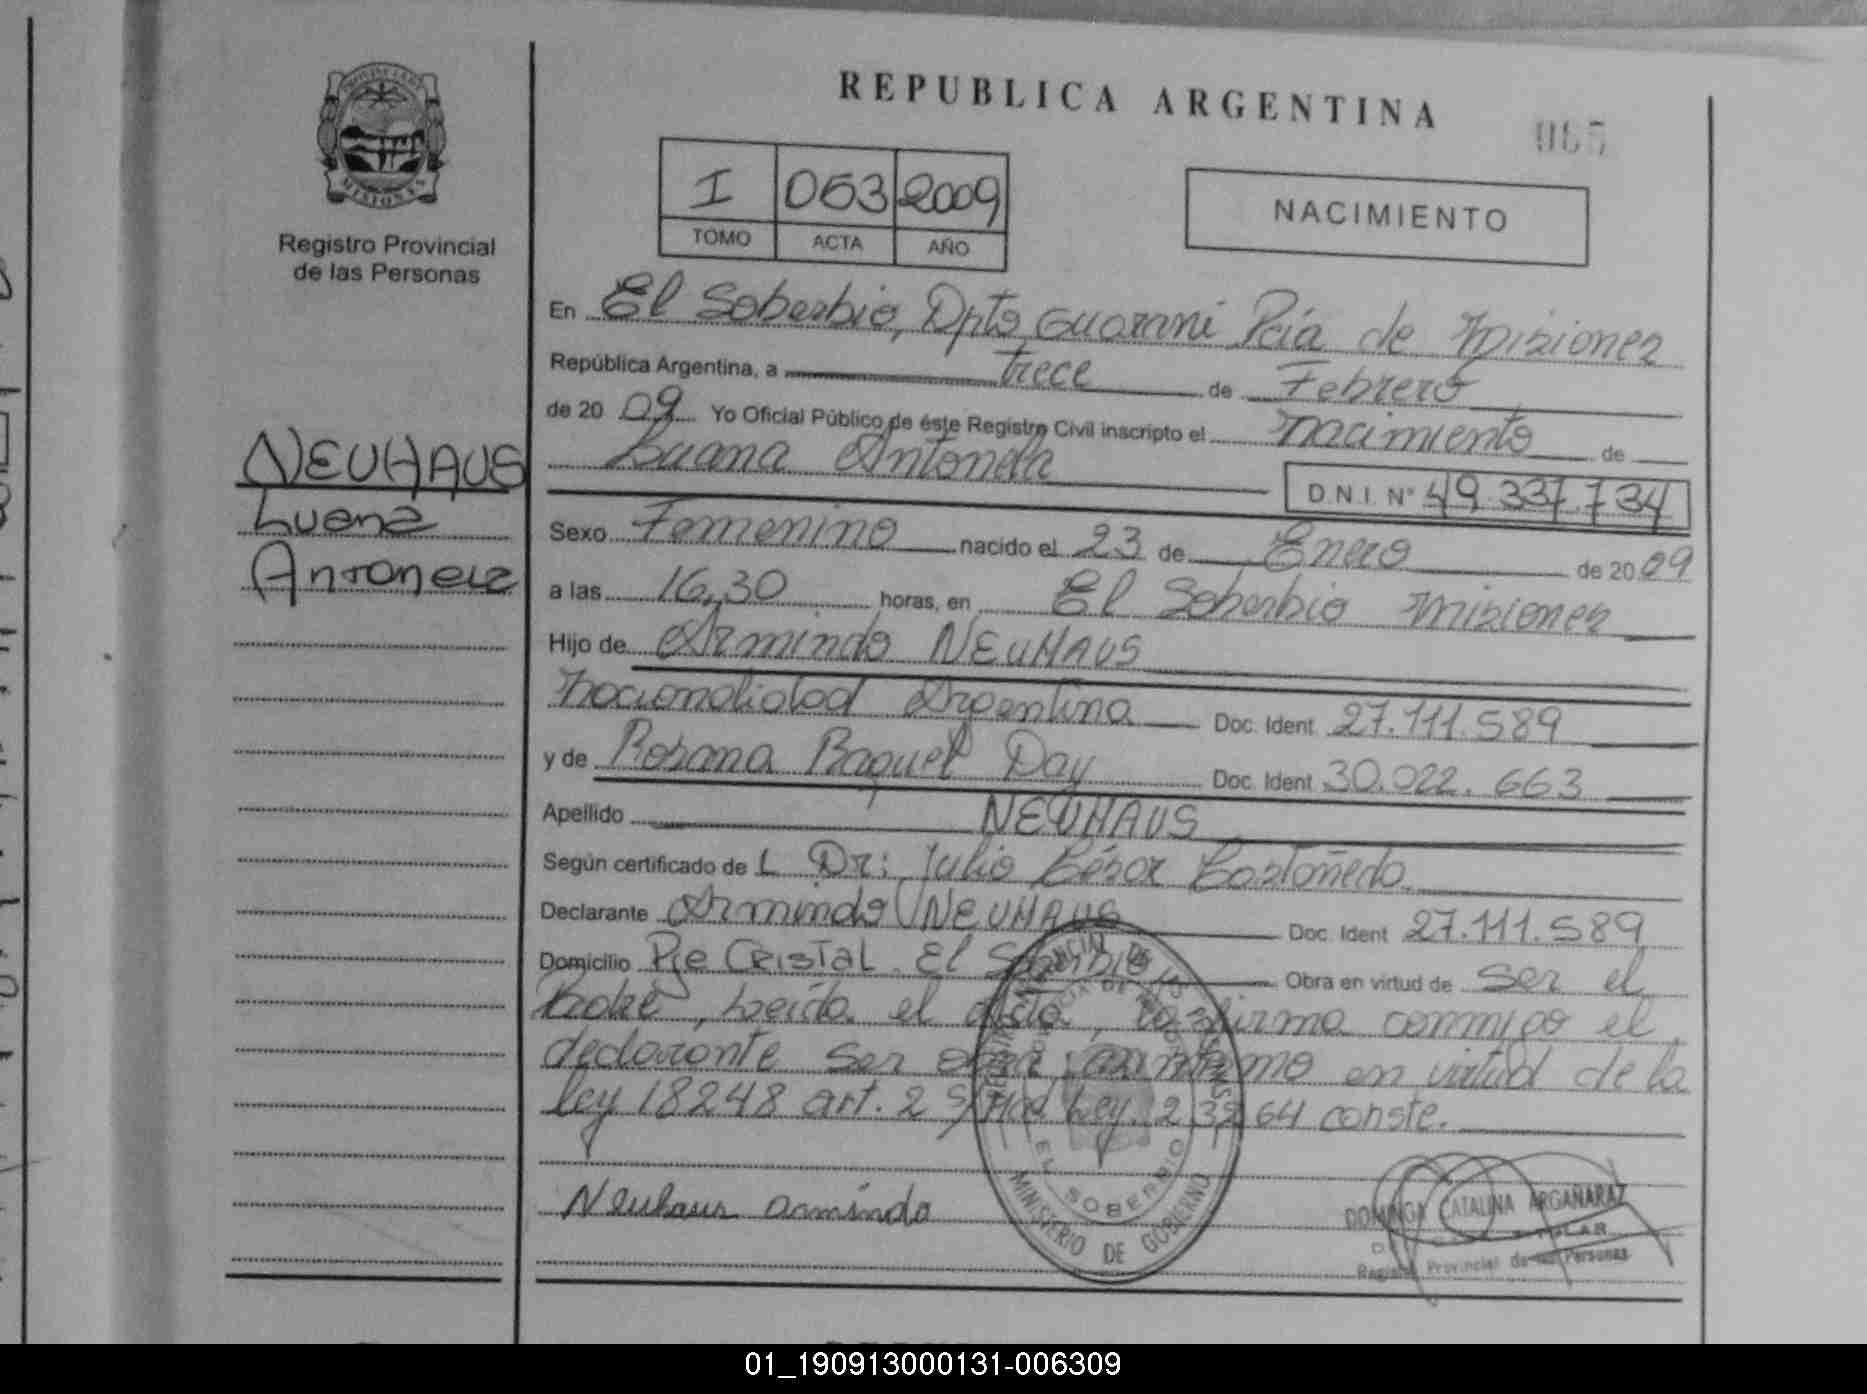 REPUBLICA ARGENTINA
065
MISIONES
Registro Provincial
de las Personas
I 063 2009
TOMO ACTA AÑO
NACIMIENTO
NEUHAUS
Luana
Antonela
En El Soberbio, Dpto Guarani Pcia de Misiones
República Argentina, a trece de Febrero
de 2009 Yo Oficial Público de éste Registro Civil inscripto el nacimiento de
Luana Antonela
D.N.I. N° 49.337.734
Sexo Femenino nacido el 23 de Enero de 2009
a las 16,30 horas, en El Soberbio Misiones
Hijo de Armindo NEUHAUS
Nacionalidad Argentina Doc. Ident. 27.111.589
y de Rosana Raquel Day Doc. Ident 30.022.663
Apellido NEUHAUS
Según certificado de L Dr: Julio César Castañeda
Declarante Armindo NEUHAUS Doc. Ident 27.111.589
Domicilio Pje Cristal El Soberbio Obra en virtud de ser el
Padre, Leída el Acta, la firma conmigo el
declarante ser en virtud de la
ley 18248 art. 2 S/Mod Ley. 23264 conste.
Neuhaus Armindo
EL SOBERBIO
MINISTERIO DE GOBIERNO
DOMINGA CATALINA ARGAÑARAZ
Registro Provincial de las Personas
01_190913000131-006309